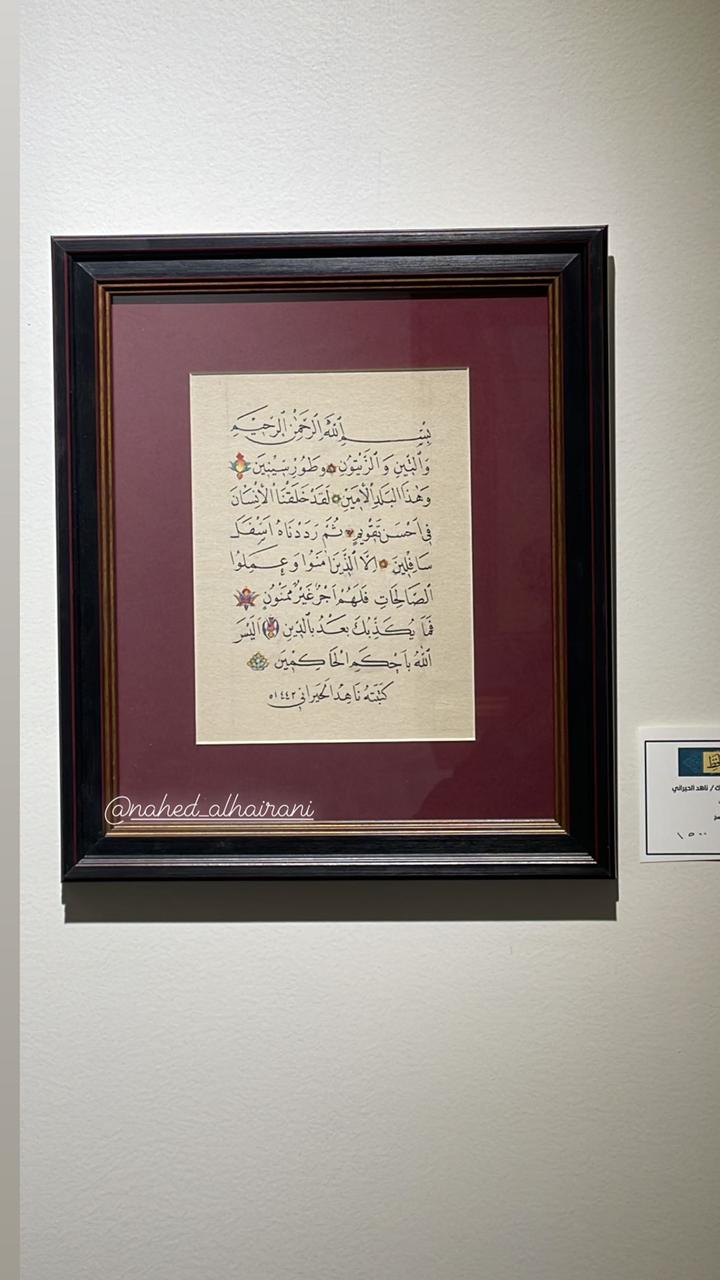 بِسْمِ اللهِ الرَّحْمٰنِ الرَّحِيْمِ
وَالتِّينِ وَالزَّيْتُونِ وَطُورِ سِينِينَ
وَهٰذَا الْبَلَدِ الْأَمِينِ لَقَدْ خَلَقْنَا الْأِنْسَانَ
فِى اَحْسَنِ تَقْوِيمٍ ثُمَّ رَدَدْنَاهُ اَسْفَلَ
سَافِلِينَ اِلَّا الَّذِينَ اٰمَنُوا وَعَمِلُوا
الصَّالِحَاتِ فَلَهُمْ اَجْرٌ غَيْرُ مَمْنُونٍ
فَمَا يُكَذِّبُكَ بَعْدُ بِالدِّينِ اَلَيْسَ
اللهُ بِاَحْكَمِ الْحَاكِمِينَ
كَتَبَتْهُ نَاهِد الحَيرَاني ١٤٤٢ه
@nahed_alhairani
ك / ناهد الحيراني
١٥٠٠